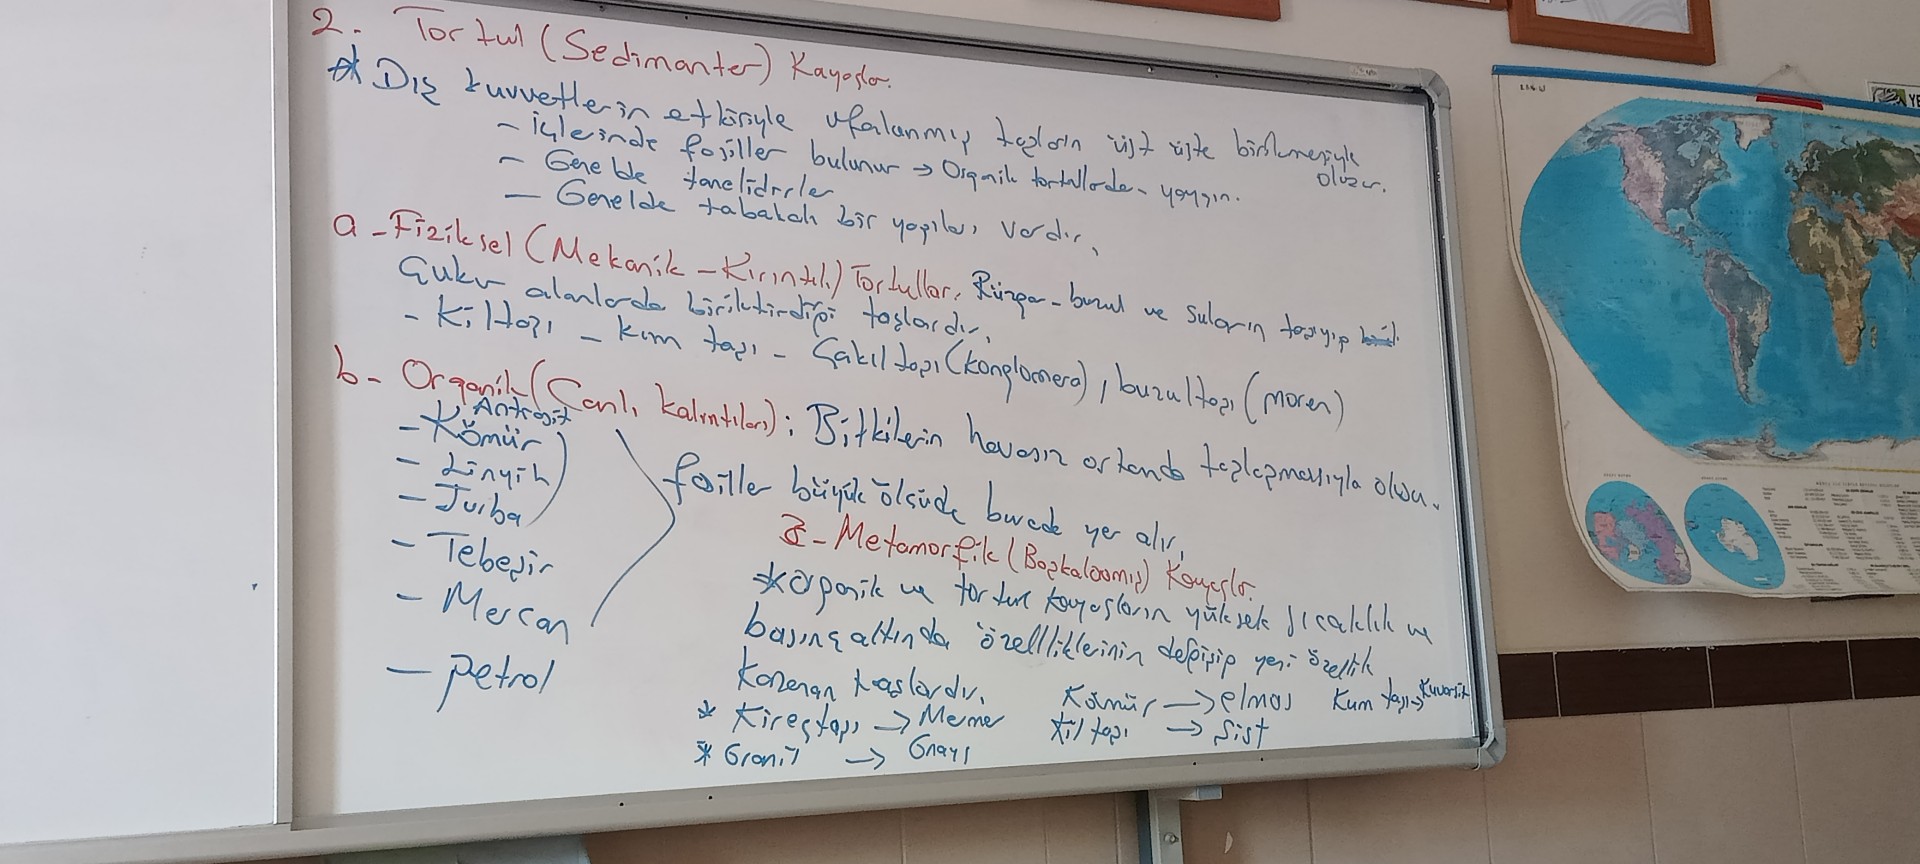 2. Tortul (Sedimanter) Kayaçlar.
* Dış kuvvetlerin etkisiyle ufalanmış taşların üst üste birikmesiyle oluşur.
- İçlerinde fosiller bulunur → Organik tortullarda yaygın.
- Genelde tanelidirler
- Genelde tabakalı bir yapıları vardır.
a - Fiziksel (Mekanik - Kırıntılı) Tortullar. Rüzgar - buzul ve suların taşıyıp
Çukur alanlarda biriktirdiği taşlardır.
- Kiltaşı - kum taşı - Çakıltaşı (konglomera), buzultaşı (moren)
b- Organik (Canlı kalıntıları): Bitkilerin havasız ortamda taşlaşmasıyla oluşur.
Antrasit
- Kömür
- Linyit
- Turba
- Tebeşir
- Mercan
- petrol
fosiller büyük ölçüde burada yer alır.
3- Metamorfik (Başkalaşmış) Kayaçlar.
* Organik ve tortul kayaçların yüksek sıcaklık ve
basınç altında özelliklerinin değişip yeni özellik
kazanan taşlardır.
* Kireçtaşı → Mermer
Kömür → elmas
Kum taşı → Kuvarsit
* Granit → Gnays
Kil taşı → Şist